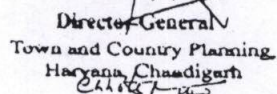 Director General
Town and Country Planning
Haryana, Chandigarh